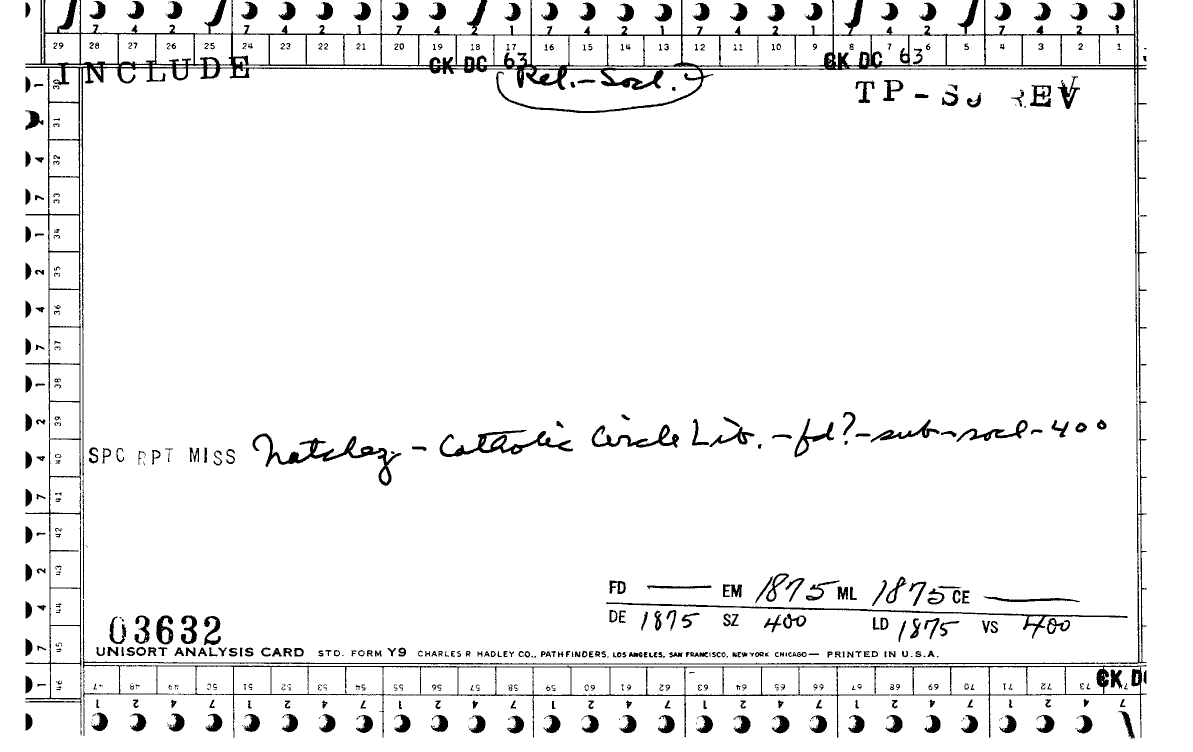 7 4 2 1 7 4 2 1 7 4 2 1 7 4 2 1 7 4 2 1 7 4 2 1 7 4 2 1
29 28 27 26 25 24 23 22 21 20 19 18 17 16 15 14 13 12 11 10 9 8 7 6 5 4 3 2 1
CK DC 63 CK DC 63
INCLUDE Rel.-Socl.? TP-SJ REV
30
31
4 32
7 33
1 34
2 35
4 36
7 37
1 38
2 39
4 40
SPC RPT MISS Natchez - Catholic Circle Lib. - fd? - sub - socl - 400
7 41
1 42
2 43
4 44
7 45
1 46
FD — EM 1875 ML 1875 CE —
DE 1875 SZ 400 LD 1875 VS 400
03632
UNISORT ANALYSIS CARD STD. FORM Y9 CHARLES R HADLEY CO., PATHFINDERS, LOS ANGELES, SAN FRANCISCO, NEW YORK CHICAGO— PRINTED IN U.S.A.
47 48 49 50 51 52 53 54 55 56 57 58 59 60 61 62 63 64 65 66 67 68 69 70 71 72 73 CK DC
1 2 4 7 1 2 4 7 1 2 4 7 1 2 4 7 1 2 4 7 1 2 4 7 1 2 4 7